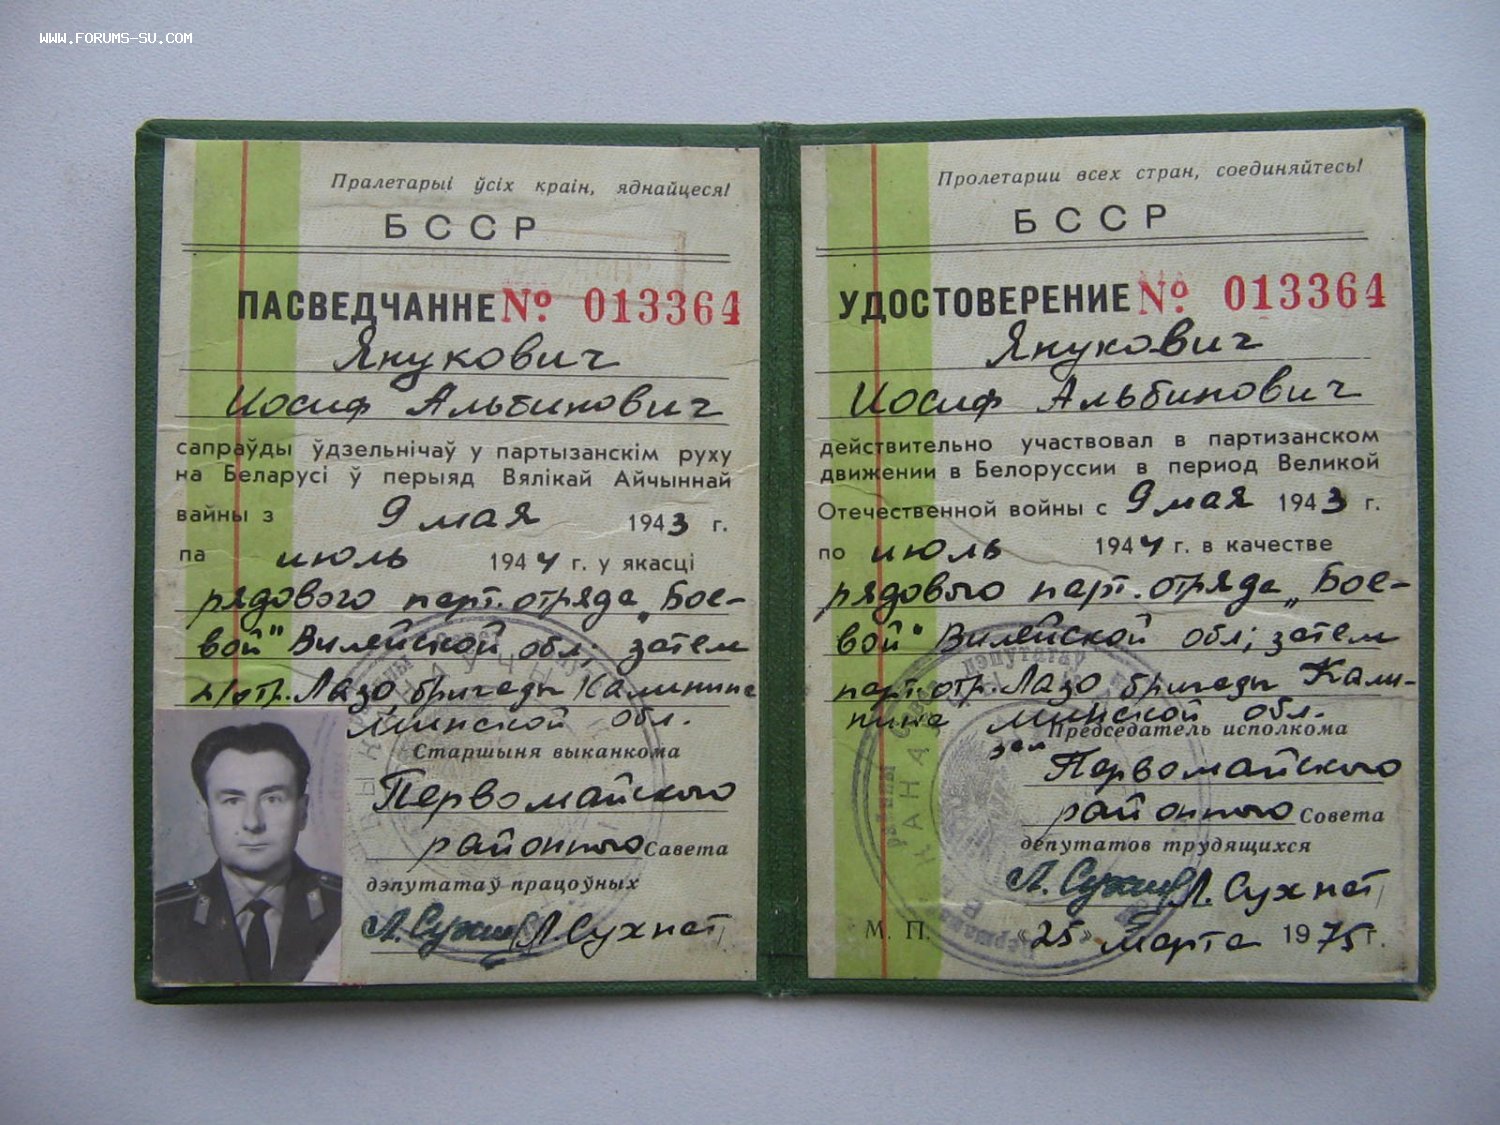 WWW.FORUMS-SU.COM
Пралетарыі ўсіх краін, яднайцеся!
БССР
ПАСВЕДЧАННЕ № 013364
Янукович
Иосиф Альбинович
сапраўды ўдзельнічаў у партызанскім руху
на Беларусі ў перыяд Вялікай Айчыннай
вайны з 9 мая 1943 г.
па июль 1944 г. у якасці
рядового парт. отряда „Бое-
вой" Вилейской обл; затем
п/отр. Лазо, бригады Калинина
Минской обл.
Старшыня выканкома
Первомайского
районного Савета
дэпутатаў працоўных
Л. Сухнат
Пролетарии всех стран, соединяйтесь!
БССР
УДОСТОВЕРЕНИЕ № 013364
Янукович
Иосиф Альбинович
действительно участвовал в партизанском
движении в Белоруссии в период Великой
Отечественной войны с 9 мая 1943 г.
по июль 1944 г. в качестве
рядового парт. отряда „Бое-
вой" Вилейской обл; затем
парт. отр. Лазо, бригады Кали-
нина Минской обл.
зам Председатель исполкома
Первомайского
районного Совета
депутатов трудящихся
Л. Сухнат
М. П. «25» марта 1975 г.